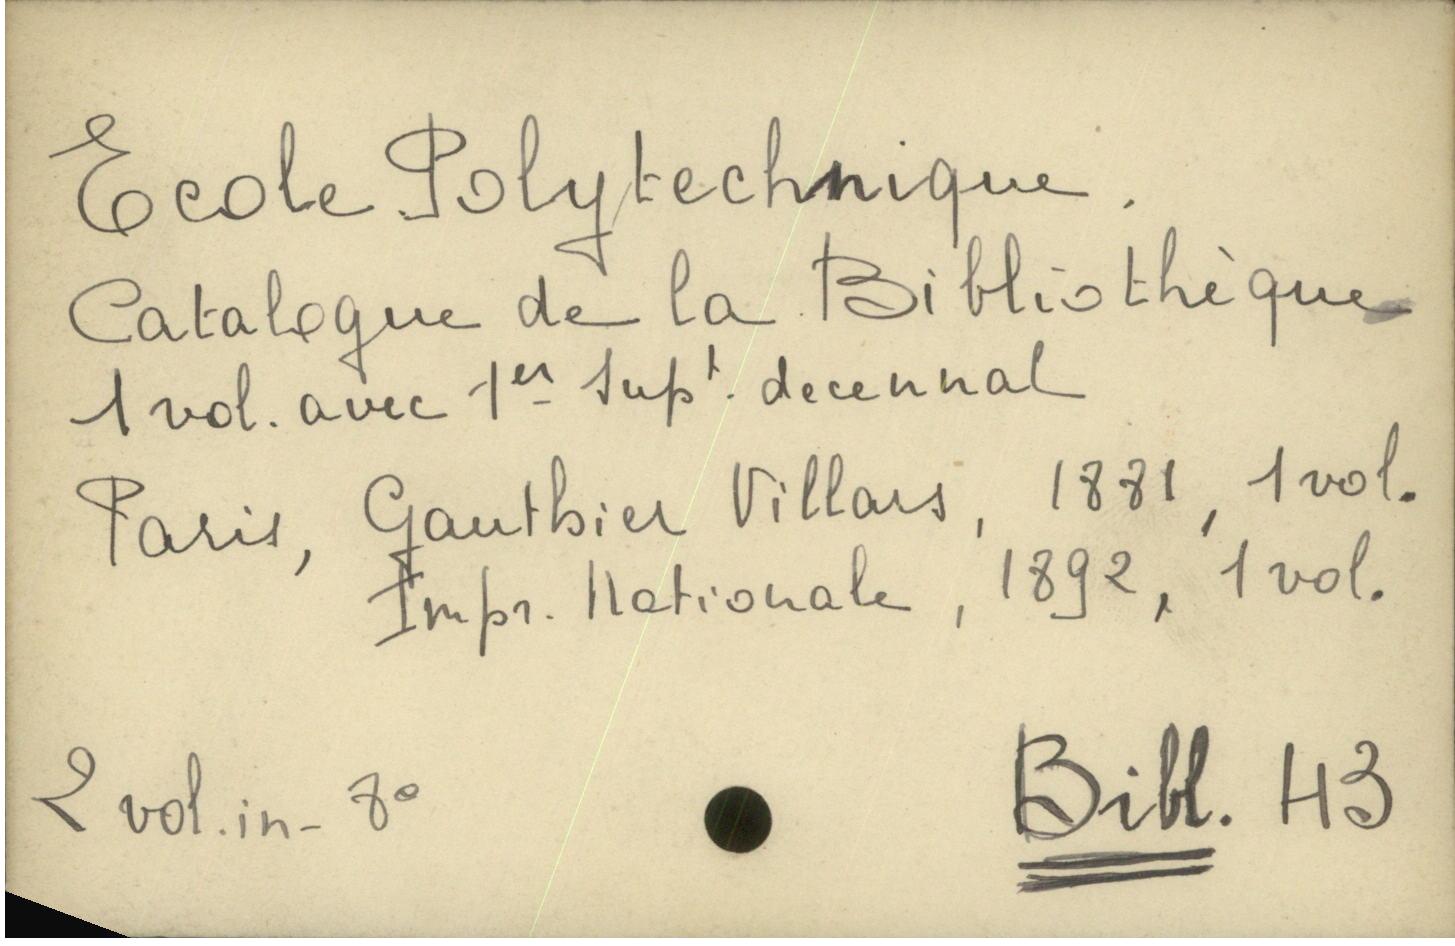 Ecole Polytechnique.
Catalogue de la Bibliothèque
1 vol. avec 1er Supt. decennal
Paris, Gauthier Villars, 1881, 1 vol.
Impr. Nationale, 1892, 1 vol.
2 vol. in-8°
Bibl. H3